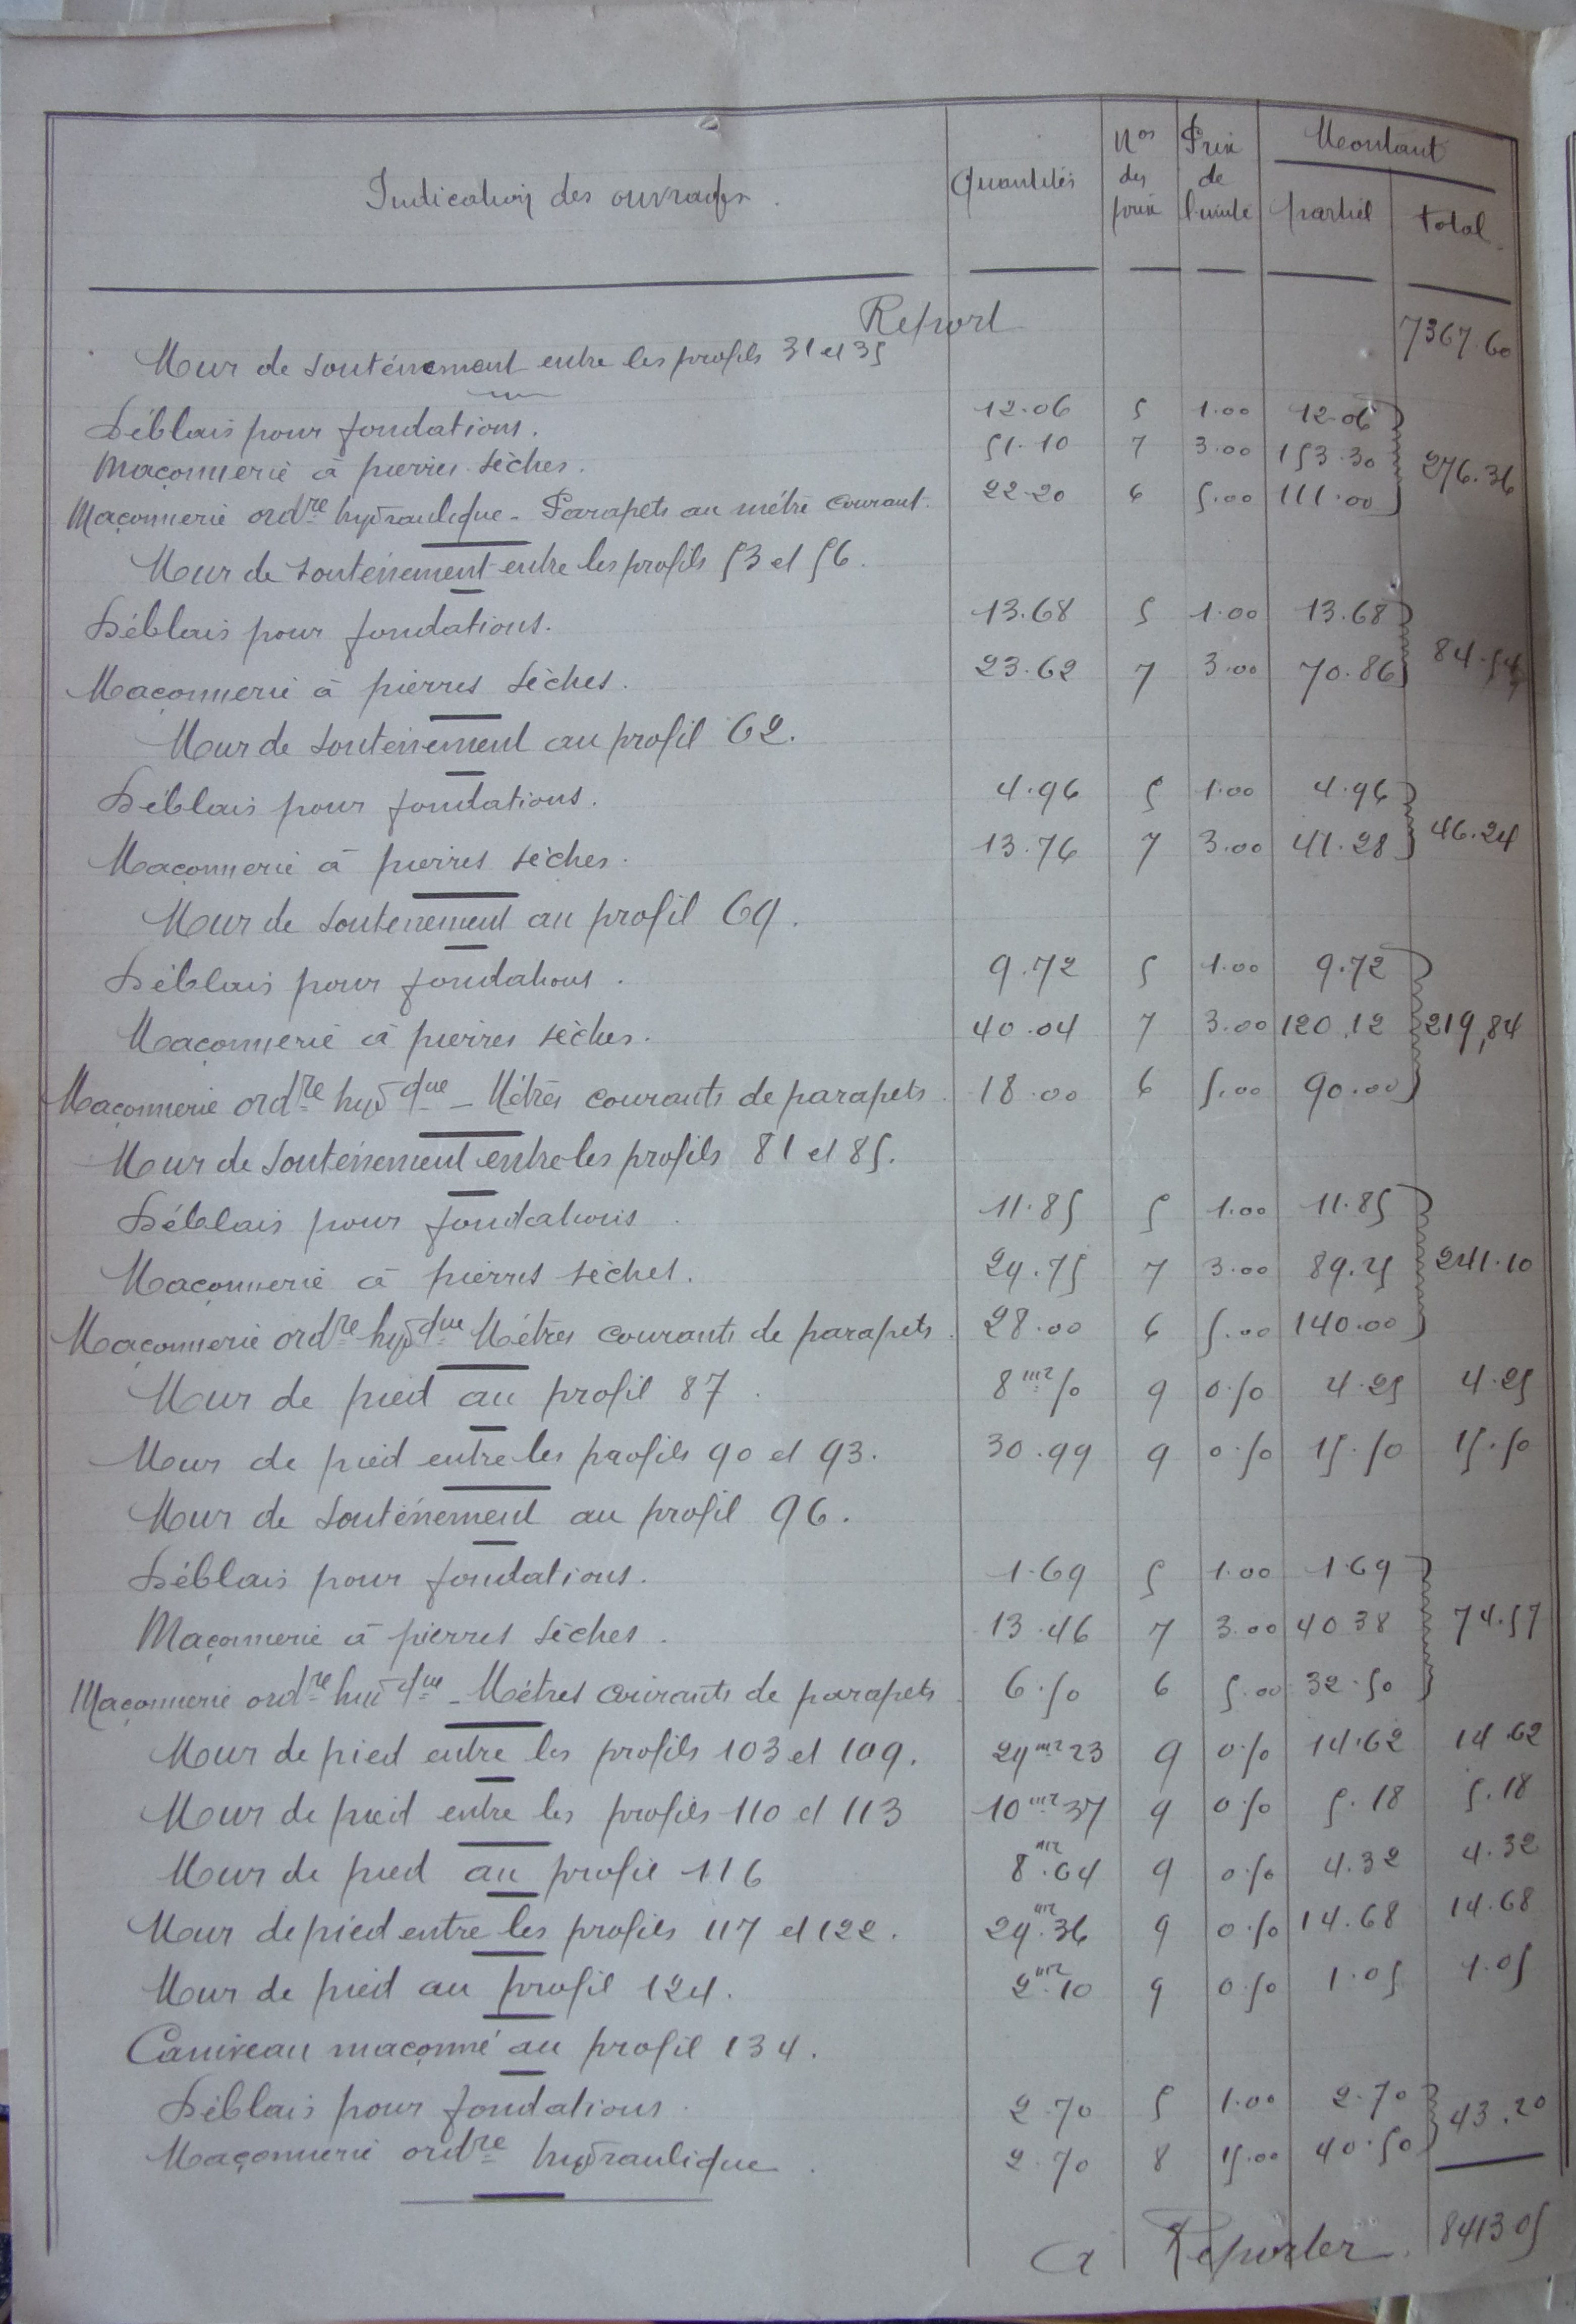 Indication des ouvrages. Quantités Nos des prix Prix de l'unité Montant partiel total
Report 7367.60
Mur de soutènement entre les profils 31 et 35
Déblais pour fondations. 12.06 5 1.00 12.06
Maçonnerie à pierres sèches. 51.10 7 3.00 153.30 276.36
Maçonnerie ordre hydraulique - Parapets au mètre courant. 22.20 6 5.00 111.00
Mur de soutènement entre les profils 53 et 56.
Déblais pour fondations. 13.68 5 1.00 13.68
Maçonnerie à pierres sèches. 23.62 7 3.00 70.86 84.54
Mur de soutènement au profil 62.
Déblais pour fondations. 4.96 5 1.00 4.96
Maçonnerie à pierres sèches. 13.76 7 3.00 41.28 46.24
Mur de soutènement au profil 69.
Déblais pour fondations. 9.72 5 1.00 9.72
Maçonnerie à pierres sèches. 40.04 7 3.00 120.12 219,84
Maçonnerie ordre hydque - Mètres courants de parapets. 18.00 6 5.00 90.00
Mur de soutènement entre les profils 81 et 85.
Déblais pour fondations. 11.85 5 1.00 11.85
Maçonnerie à pierres sèches. 29.75 7 3.00 89.25 241.10
Maçonnerie ordre hydque Mètres courants de parapets. 28.00 6 5.00 140.00
Mur de pied au profil 87. 8m2 50 9 0.50 4.25 4.25
Mur de pied entre les profils 90 et 93. 30.99 9 0.50 15.50 15.50
Mur de soutènement au profil 96.
Déblais pour fondations. 1.69 5 1.00 1.69
Maçonnerie à pierres sèches. 13.46 7 3.00 40 38 74.57
Maçonnerie ordre hydque - Mètres courants de parapets. 6.50 6 5.00 32.50
Mur de pied entre les profils 103 et 109. 29m2 23 9 0.50 14.62 14.62
Mur de pied entre les profils 110 et 113 10m2 37 9 0.50 5.18 5.18
Mur de pied au profil 116 8m2.64 9 0.50 4.32 4.32
Mur de pied entre les profils 117 et 122. 29m2.36 9 0.50 14.68 14.68
Mur de pied au profil 124. 2m2.10 9 0.50 1.05 1.05
Caniveau maçonné au profil 134.
Déblais pour fondations. 2.70 5 1.00 2.70
Maçonnerie ordre hydraulique. 2.70 8 15.00 40.50 43.20
A Reporter. 8413 05